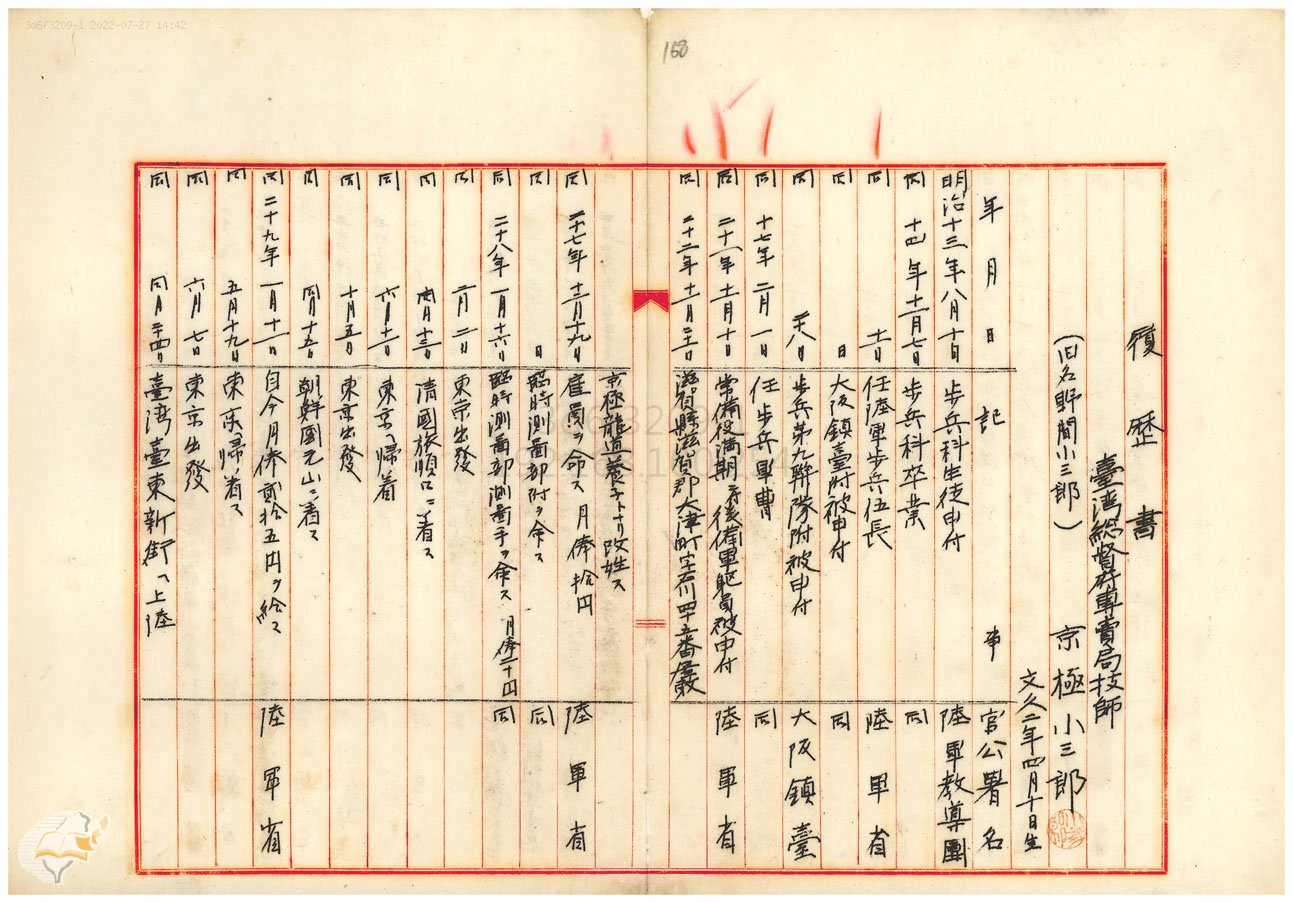 3d6f3209-1 2022-07-27 14:42
168
履歴書
臺湾総督府専賣局技師
(旧名野間小三郎) 京極小三郎
文久二年四月十日生
年月日 記事 官公署名
明治十三年八月十日 歩兵科生徒申付 陸軍教導團
同 十四年十二月七日 歩兵科卒業 同
同 十一日 任陸軍歩兵伍長 陸軍省
同 日 大阪鎮臺附被申付 同
同 二十八日 歩兵第九聯隊附被申付 大阪鎮臺
同 十七年二月一日 任歩兵軍曹 同
同 二十一年十二月十日 常備役満期ニ付後備軍駆員被申付 陸軍省
同 二十二年十二月二十三日 滋賀縣滋賀郡大津町字石川四十五番屋敷
京極龍道養子トナリ改姓ス
同 二十七年十二月十九日 雇員ヲ命ス 月俸拾円 陸軍省
同 日 臨時測圖部附ヲ命ス 同
同 二十八年一月十六日 臨時測圖部測圖手ヲ命ス 月俸二十円 同
同 二月二日 東京出發
同 同月十三日 清國旅順口ニ着ス
同 六月十二日 東京ヘ帰着
同 十月五日 東京出發
同 同月十五日 朝鮮國元山ニ着ス
同 二十九年一月十一日 自今月俸貮拾五円ヲ給ス 陸軍省
同 五月十九日 東京帰着ス
同 六月七日 東京出發
同 同月二十四日 臺湾臺東新街ヘ上陸